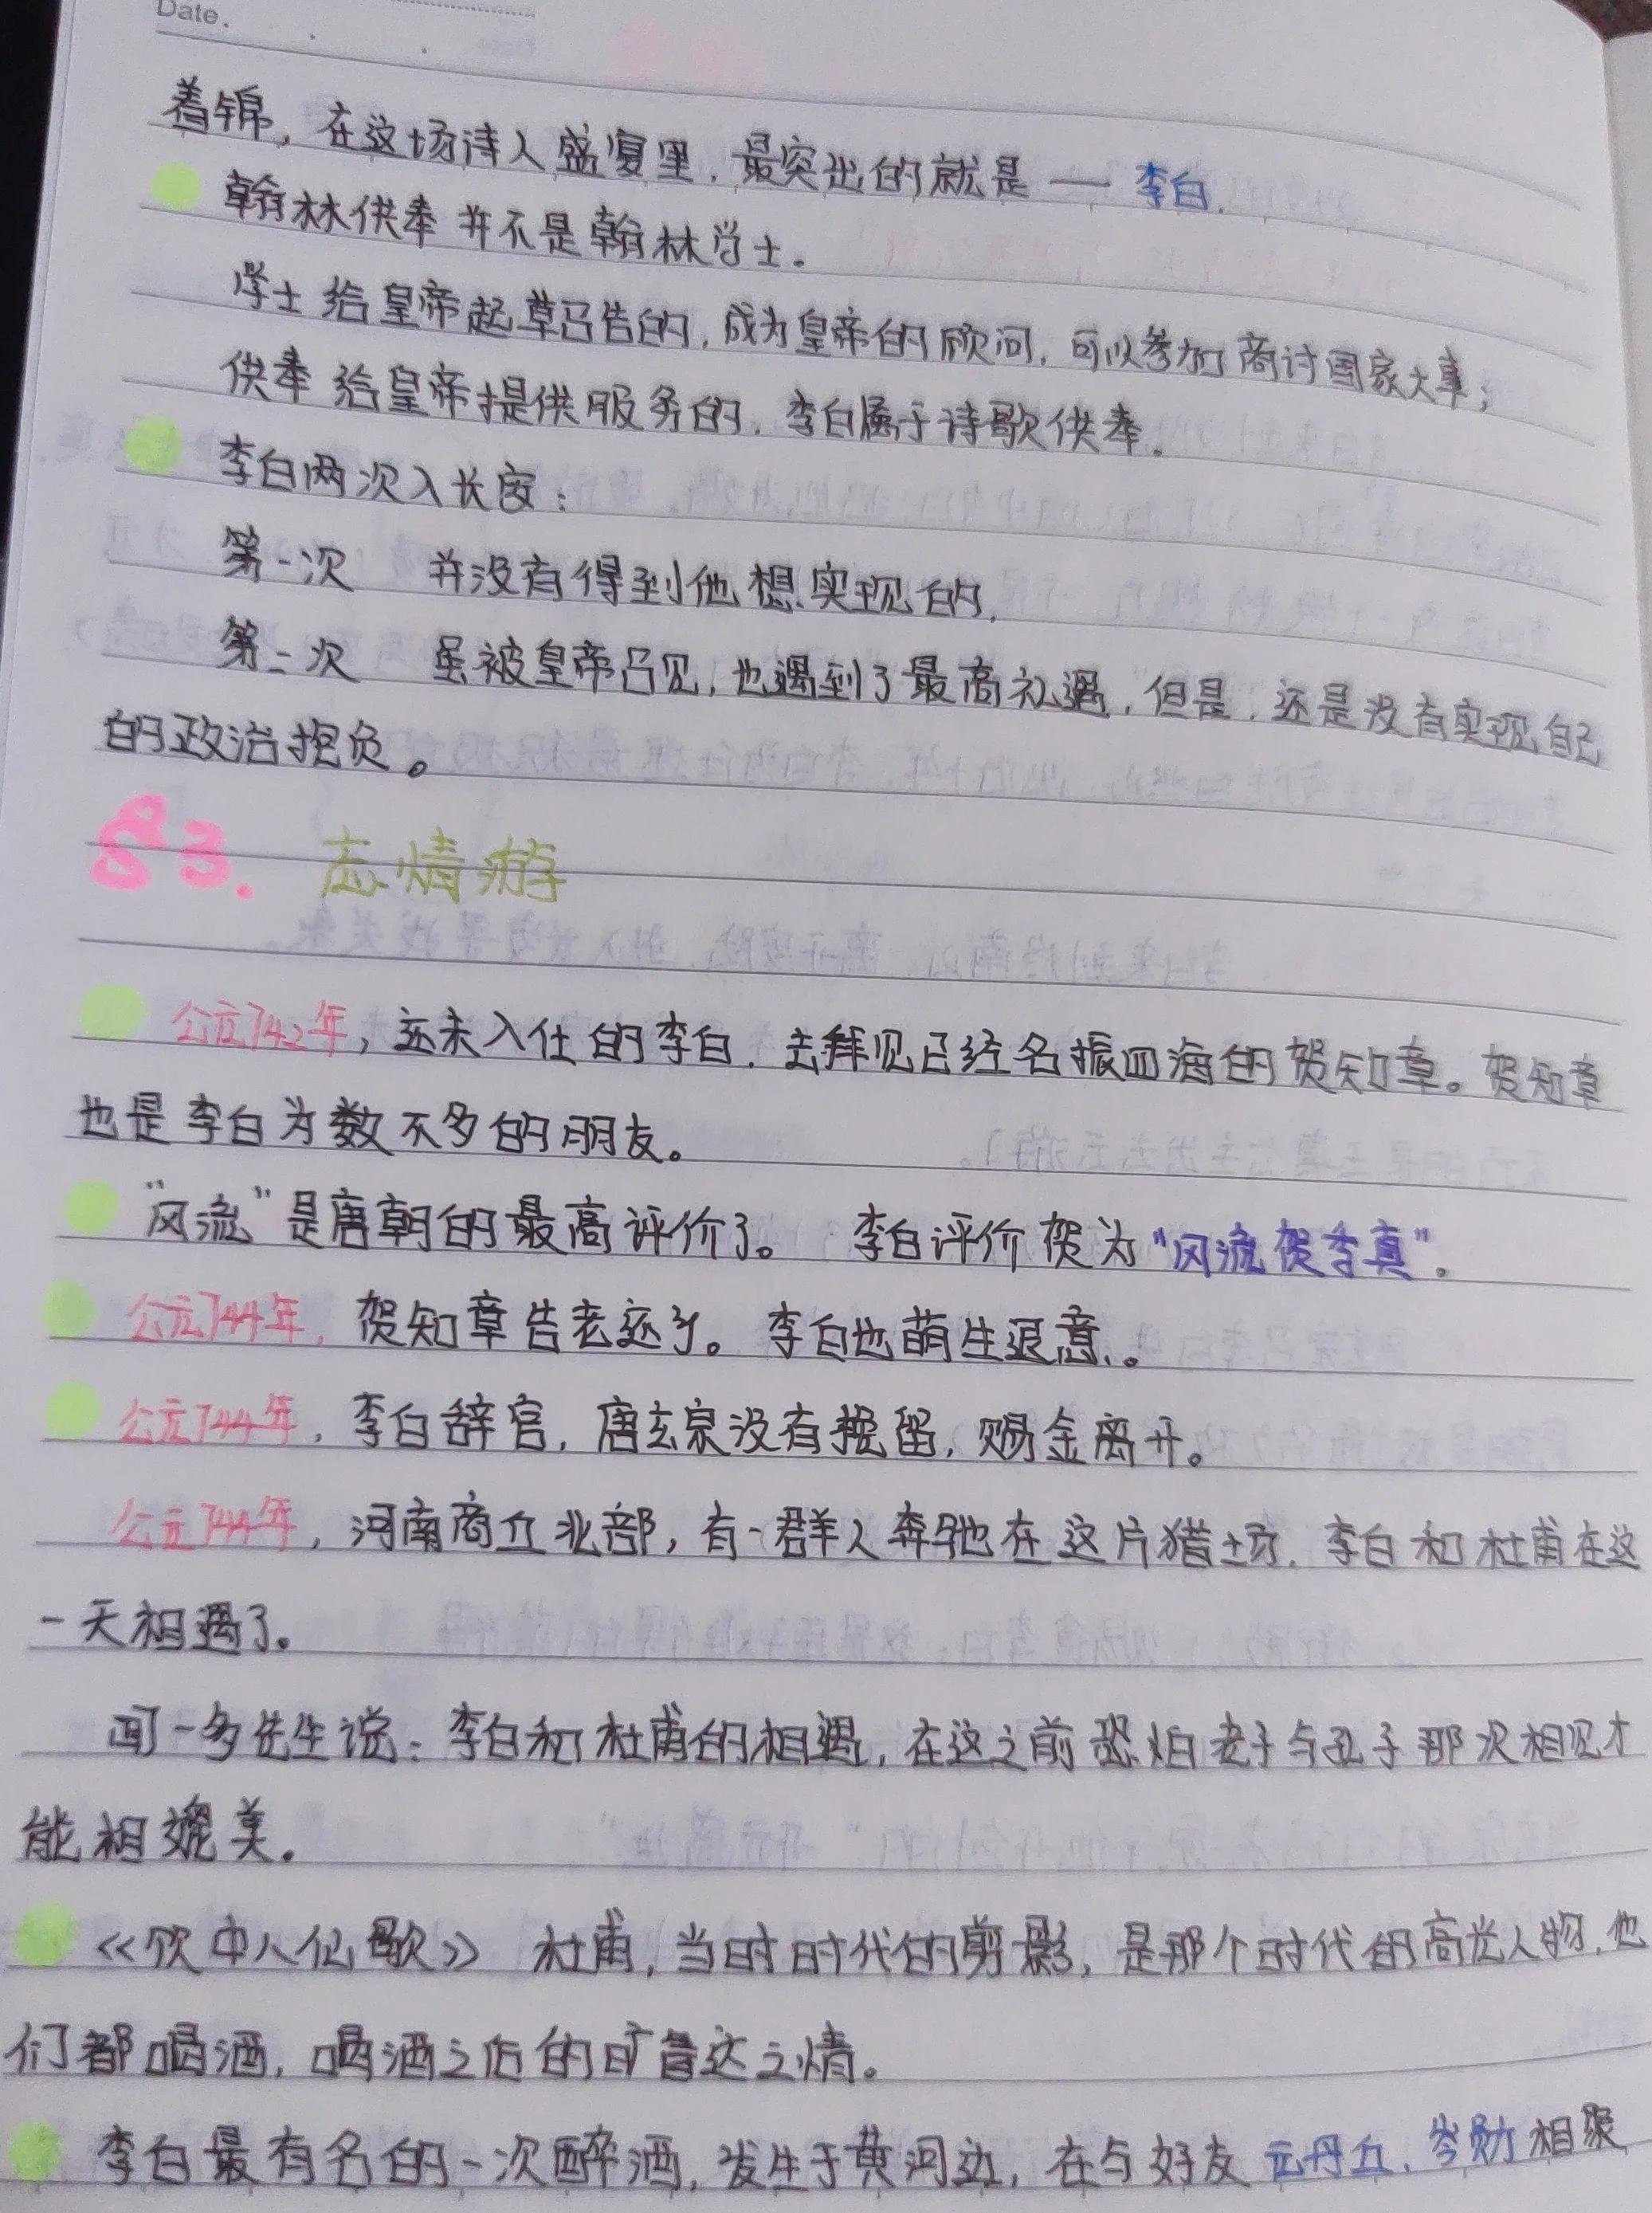 Date.
着锦,在这场诗人盛宴里,最突出的就是——李白.
翰林供奉并不是翰林学士。
学士 给皇帝起草召告的,成为皇帝的顾问,可以参加商讨国家大事;
供奉 给皇帝提供服务的,李白属于诗歌供奉。
李白两次入长安:
第一次 并没有得到他想实现的.
第二次 虽被皇帝召见,也遇到了最高礼遇,但是,还是没有实现自己
的政治抱负。
§3. 忘情游
公元742年,还未入仕的李白,去拜见已经名振四海的贺知章。贺知章
也是李白为数不多的朋友。
"风流"是唐朝的最高评价了。 李白评价贺为"风流贺季真"。
公元744年,贺知章告老还乡。李白也萌生退意。
公元744年,李白辞官,唐玄宗没有挽留,赐金离开。
公元744年,河南商丘北部,有一群人奔驰在这片猎场.李白和杜甫在这
一天相遇了。
闻一多先生说:李白和杜甫的相遇,在这之前恐怕老子与孔子那次相见才
能相媲美.
《饮中八仙歌》 杜甫,当时时代的剪影,是那个时代的高光人物,他
们都喝酒,喝酒之后的旷达之情。
李白最有名的一次醉酒,发生于黄河边,在与好友元丹丘、岑勋相聚